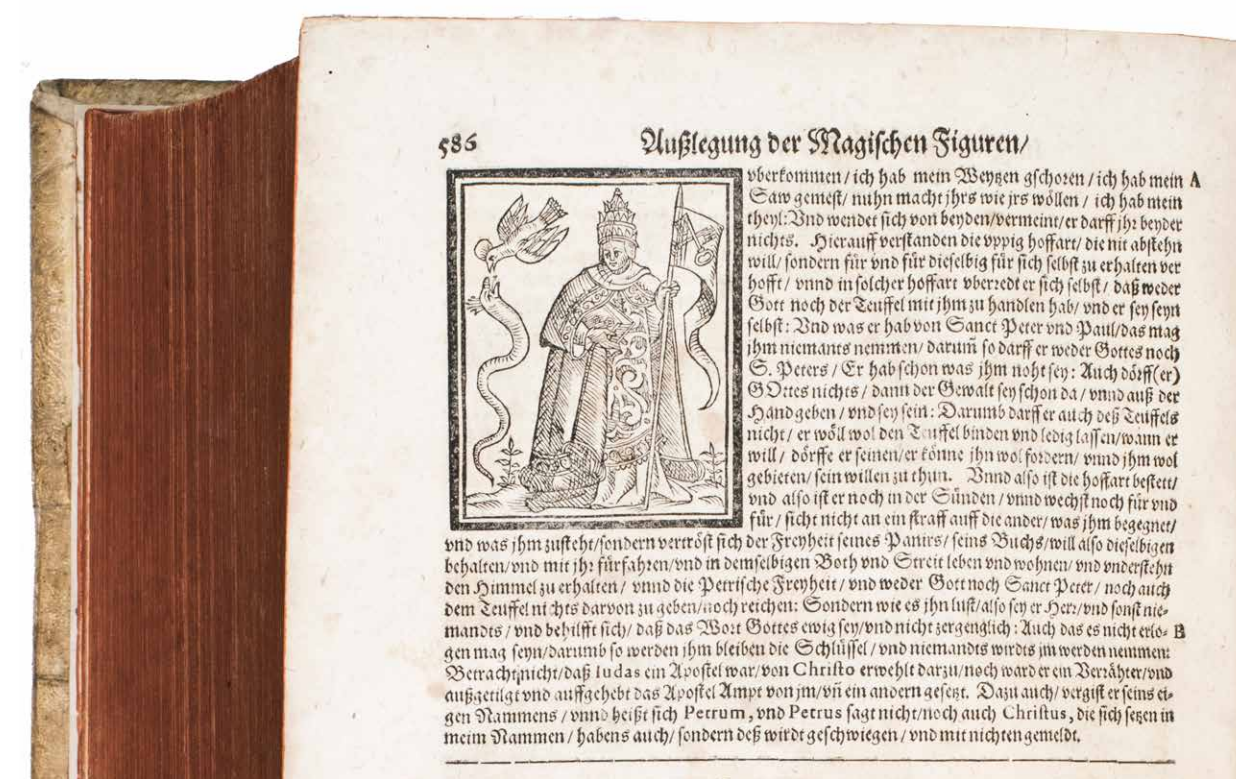 586
Außlegung der Magischen Figuren/
vberkommen / ich hab mein Weytzen gschoren / ich hab mein A
Saw gemest/ nuhn macht jhrs wie jrs wöllen / ich hab mein
theyl: Vnd wendet sich von beyden/vermeint/er darff jhr beyder
nichts. Hierauff verstanden die vppig hoffart/ die nit abstehn
will/ sondern für vnd für dieselbig für sich selbst zu erhalten ver
hofft / vnnd in solcher hoffart vberredt er sich selbst / daß weder
Gott noch der Teuffel mit jhm zu handlen hab/ vnd er sey seyn
selbst: Vnd was er hab von Sanct Peter vnd Paul/das mag
jhm niemants nemmen/ darum̃ so darff er weder Gottes noch
S. Peters / Er hab schon was jhm noht sey: Auch dörff(er)
GOttes nichts / dann der Gewalt sey schon da / vnnd auß der
Hand geben / vnd sey sein: Darumb darff er auch deß Teuffels
nicht / er wöll wol den Teuffel binden vnd ledig lassen/wann er
will / dörffe er seinen/er könne jhn wol fordern/ vnnd jhm wol
gebieten/ sein willen zu thun. Vnnd also ist die hoffart bestett/
vnd also ist er noch in der Sünden / vnnd wechst noch für vnd
für / sicht nicht an ein straff auff die ander/ was jhm begegnet/
vnd was jhm zusteht/sondern vertröst sich der Freyheit seines Panirs/ seins Buchs/will also dieselbigen
behalten/vnd mit jhr fürfahren/vnd in demselbigen Both vnd Streit leben vnd wohnen/ vnd vnderstehn
den Himmel zu erhalten / vnnd die Petrische Freyheit / vnd weder Gott noch Sanct Peter / noch auch
dem Teuffel nichts darvon zu geben/noch reichen: Sondern wie es jhn lust/also sey er Herr/vnd sonst nie-
mandts / vnd behilfft sich/ daß das Wort Gottes ewig sey/vnd nicht zergenglich: Auch das es nicht erlo- B
gen mag seyn/darumb so werden jhm bleiben die Schlüssel / vnd niemandts wirdts jm werden nemmen:
Betracht nicht/daß Iudas ein Apostel war/von Christo erwehlt darzu/noch ward er ein Verrähter/vnd
außgetilgt vnd auffgehebt das Apostel Ampt von jm/vñ ein andern gesetzt. Dazu auch/ vergist er seins ei-
gen Nammens / vnnd heißt sich Petrum, vnd Petrus sagt nicht/noch auch Christus, die sich setzen in
meim Nammen / habens auch/ sondern deß wirdt geschwiegen / vnd mit nichten gemeldt.